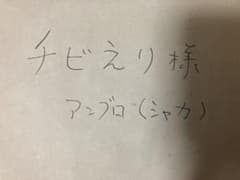 チビえり様
アンブロ(シャカ)